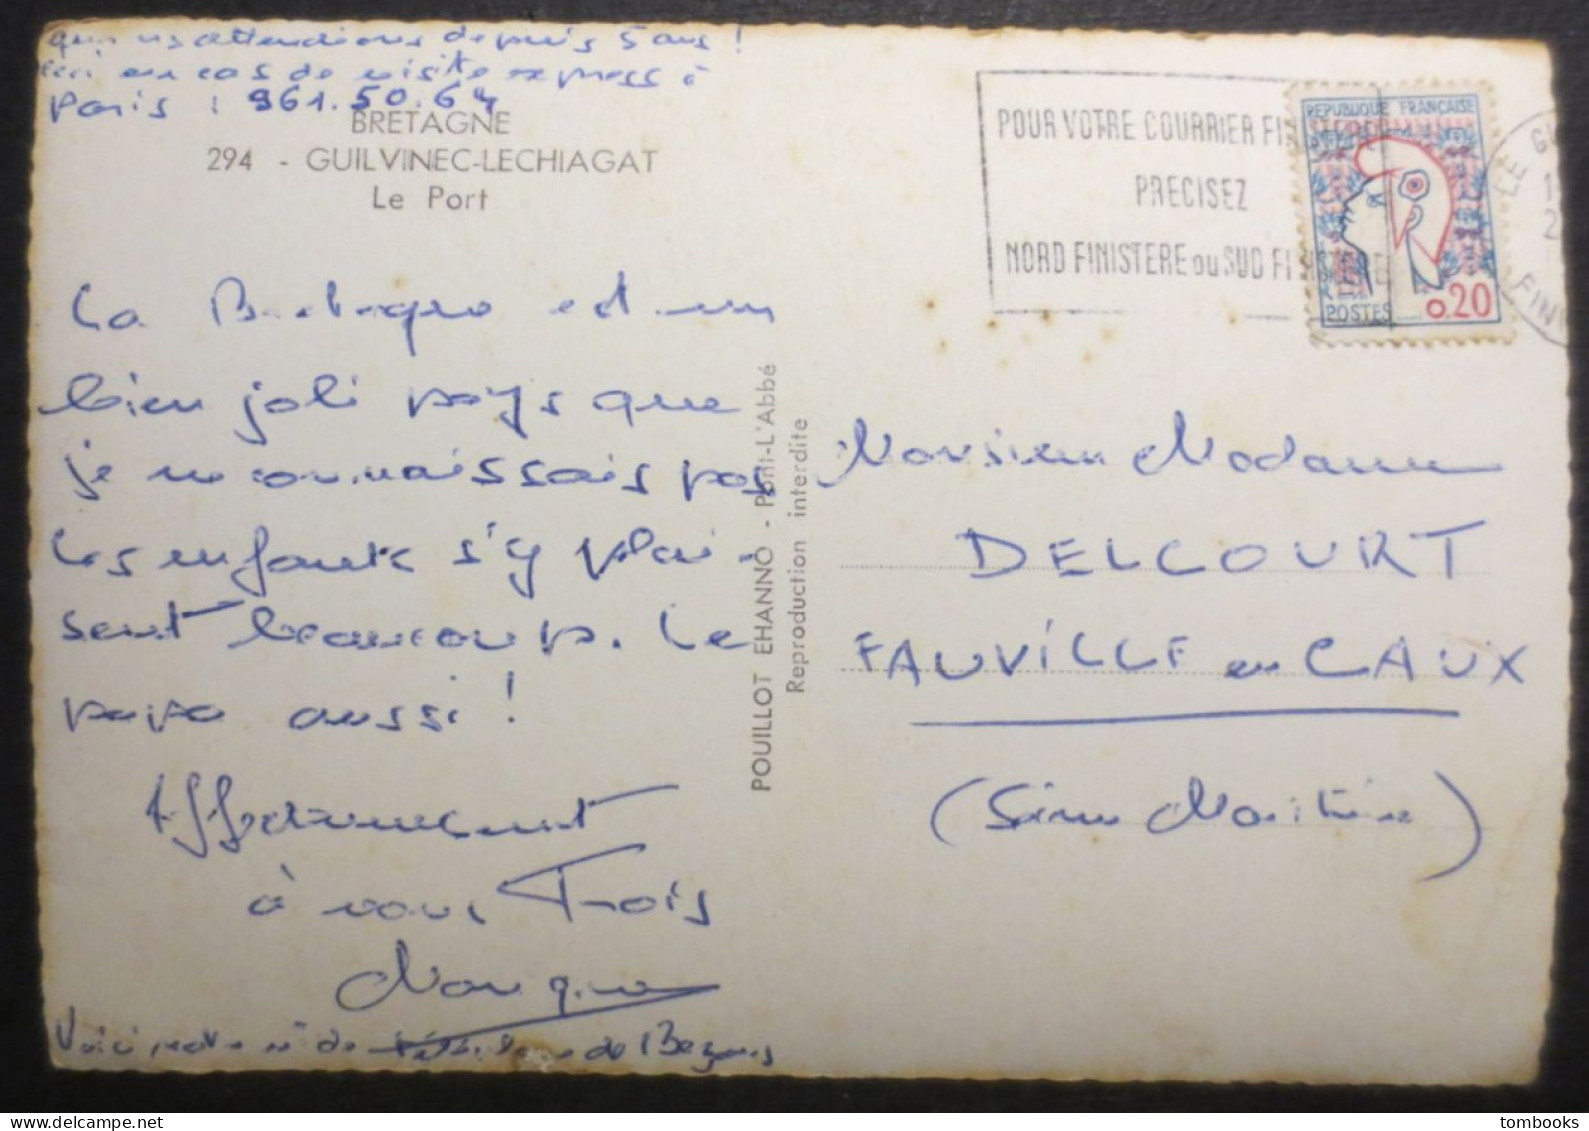 qui ns attendions depuis 5 ans !
ceci au cas de visite express à
Paris : 961.50.64
BRETAGNE
294 - GUILVINEC-LECHIAGAT
Le Port
La Bretagne est un
bien joli pays que
je ne connaissais pas
Les enfants s'y plai-
sent beaucoup. Le
papa aussi !
Affectueusement
à vous Trois
Monique
Voici notre n° de téléphone de Bezons
POUILLOT EHANNO - Pont-L'Abbé
Reproduction interdite
POUR VOTRE COURRIER FINISTERE
PRECISEZ
NORD FINISTERE OU SUD FINISTERE
REPUBLIQUE FRANÇAISE
POSTES 0,20
LE GU
FINI
Monsieur Madame
DELCOURT
FAUVILLE en CAUX
(Seine Maritime)
tombooks